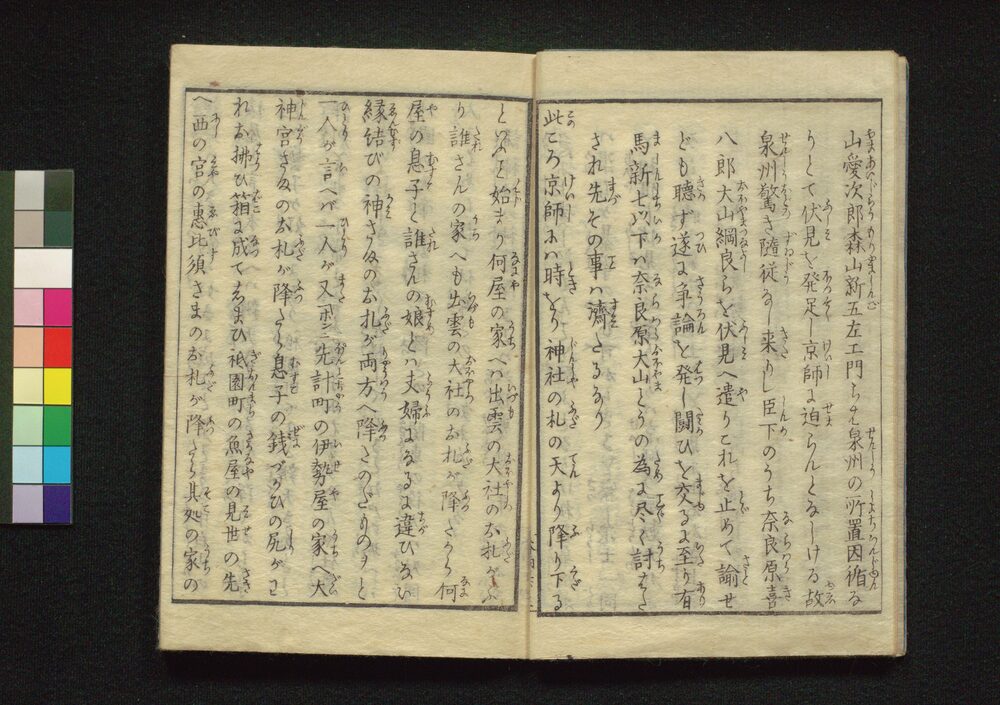 山愛次郎森山新五左エ門らハ泉州の所置因循な
りとて伏見を発足し京師に迫らんとなしける故
泉州驚き随従なし来りし臣下のうち奈良原喜
八郎大山綱良らを伏見へ遣りこれを止めて諭せ
ども聴ず遂に争論を発し闘ひを交るに至り有
馬新七以下ハ奈良原大山らの為に尽く討た
され先その事ハ済たるなり
此ころ京師にハ時をり神社の札の天より降り下る
といふこと始まり何屋の家へハ出雲の大社のお札がふ
り誰さんの家へも出雲の大社のお札が降たから何
屋の息子と誰さんの娘とハ夫婦になるに違ひない
縁結びの神さまのお札が両方へ降たのだものヲと
一人が言へバ一人が又ポン先計町の伊勢屋の家へ大
神宮さまのお札が降たら息子の銭づかひの尻がわ
れお払ひ箱に成てしまひ祇園町の魚屋の見世の先
へ西の宮の恵比須さまのお札が降たら其処の家の